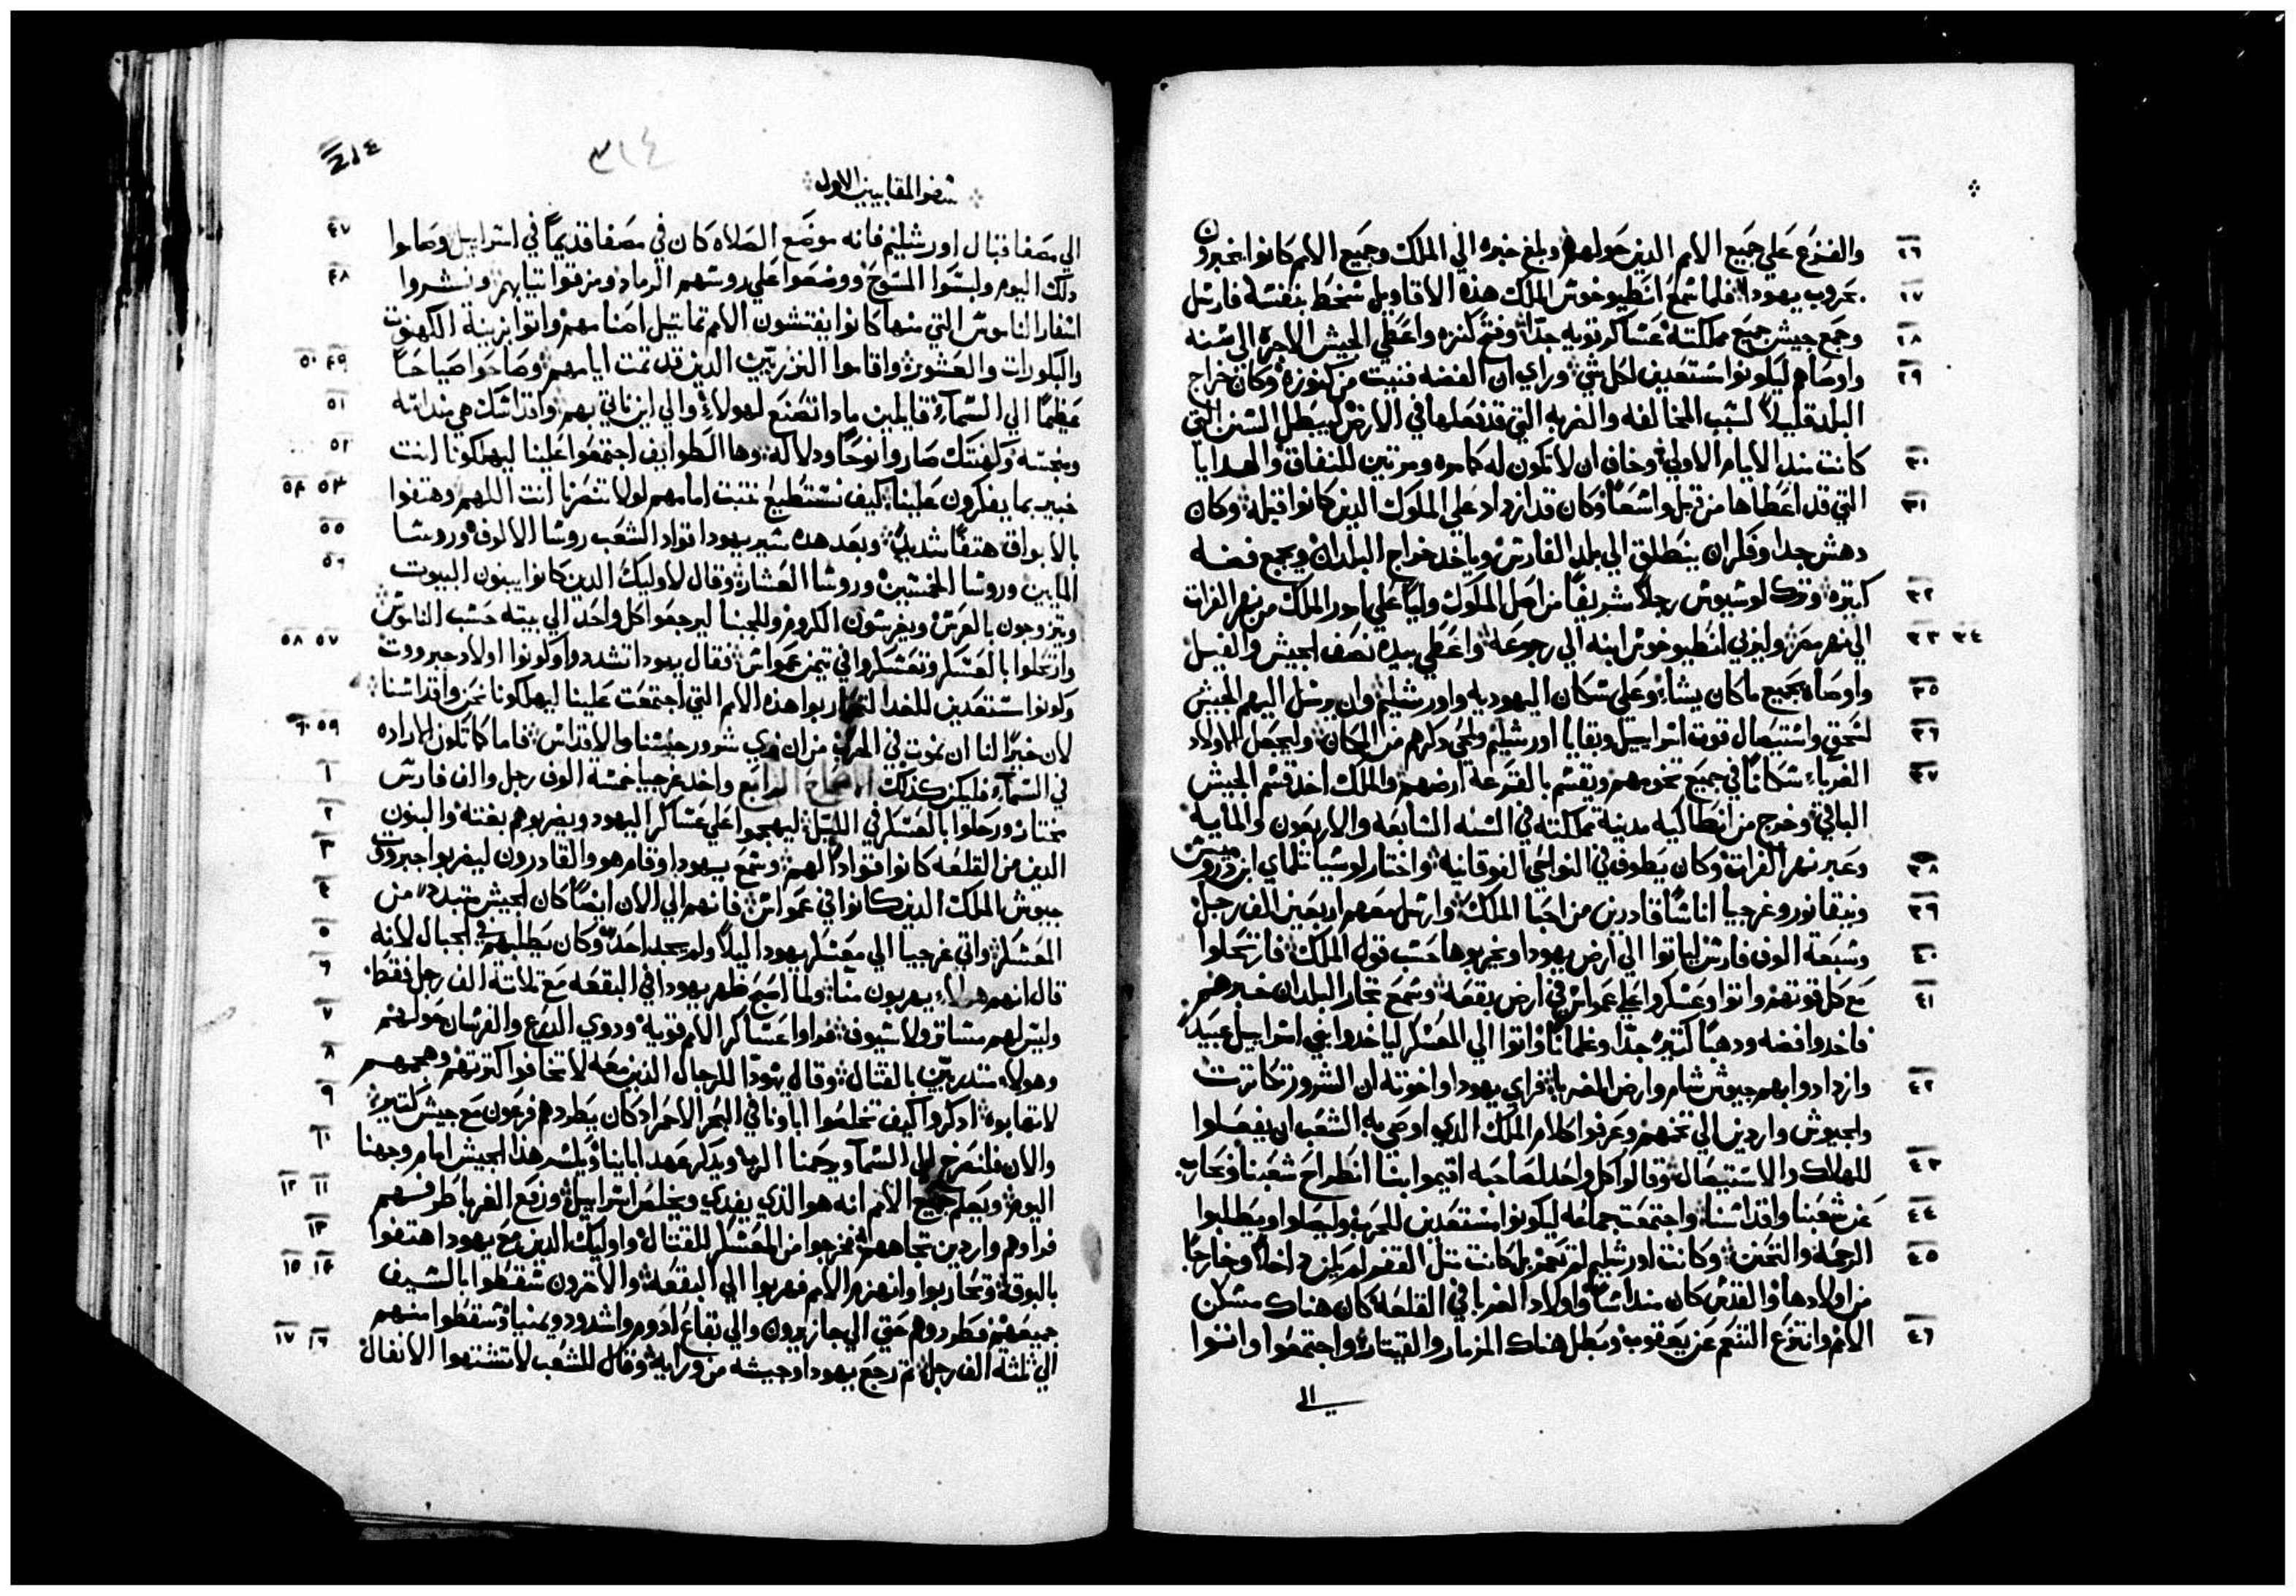 ٢٦ والفزع علي جميع الامم الذين حولهم وبلغ خبره الي الملك وجميع الامم كانوا يخبرون
٢٧ بحروب يهودا فلما سمع انطيوخوس الملك هذه الاقاويل سخط بنفسه فارسل
٢٨ وجمع جيش جميع مملكته عساكر قويه جدا وفتح كنزه واعطي الجيش الاجرة الي سنه
٢٩ واوصاهم ليكونوا مستعدين لكل شي وراي ان الفضه فنيت من كنوزه وكان خراج
البلد قليلا لسبب المخالفه والضربه التي قد فعلها في الارض ليبطل السنن التي
٣٠ كانت منذ الايام الاولي وخاف ان لا تكون له كامره ومرتين للنفاق والهدايا
٣١ التي قد اعطاها من قبل واسعا وكان قد ازداد علي الملوك الذين كانوا قبله وكان
دهش جدا وفكر ان ينطلق الي بلد الفارس وياخد خراج البلدان ويجمع فضه
٣٢ كتيره وترك لوسيوس رجلا شريفا من اصل الملوك وليا علي امور الملك من نهر الفرات
٣٣ ٣٤ الي نهر مصر وليربي انطيوخوس ابنه الي رجوعه واعطي بيده نصف الجيش والفيل
٣٥ واوصاه بجميع ما كان يشاء وعلي سكان اليهوديه واورشليم وان يرسل اليهم الجيش
٣٦ لسحق واستيصال قوت اسراييل وبقايا اورشليم ويمحي دكرهم من المكان وليجعل اولاد
٣٧ الغرباء سكانا في جميع تخومهم ويقسم بالقرعه ارضهم والملك اخد قسم الجيش
الباقي وخرج من انطاكيه مدينة مملكته في السنه السابعه والاربعون والمايه
٣٨ وعبر نهر الفرات وكان يطوف في النواحي الفوقانيه واختار لوسيا تلماي ابن دوروميس
٣٩ ونيقانور وغرجيا اناسا قادرين من احبا الملك وارسل معهم اربعين الف رجل
٤٠ وسبعة الوف فارس لياتوا الي ارض يهودا ويخربوها حسب قول الملك فارتحلوا
٤١ مع كل قوتهم واتوا وعسكروا علي عمواس في ارض بقعه وسمع تجار البلدان خبرهم
فاخدوا فضه ودهبا كتير جدا وغلمانا واتوا الي المعسكر لياخدوا بني اسراييل عبيدا
٤٢ وازدادوا بهم جيوش شام وارض الغربا فراي يهودا واخوته ان الشرور تكاترت
والجيوش واردين الي تخمهم وعرفوا كلام الملك الدي اوصي به الشعب ان يفعلوا
٤٣ للهلاك والاستيصال وقالوا كل واحد لصاحبه اقيموا بنا انطراح شعبنا ونحارب
٤٤ عن شعبنا واقداسنا واجتمعت جماعه ليكونوا مستعدين للحرب وليصلوا ويطلبوا
٤٥ الرحمه والتحنن وكانت اورشليم لم تعمر بل كانت متل القفر لم يكن داخلا وخارجا
من اولادها والقدس كان منداسا واولاد الغربا في القلعه كان هناك مسكن
٤٦ الامم وانتزع التنعم عن يعقوب وبطل هناك المزمار والقيتار واجتمعوا واتوا
الي
٣١٤
سفر المقابيين الاول
٤٧ الي مصفا قبال اورشليم فانه موضع الصلاه كان في مصفا قديما في اسراييل وصاموا
٤٨ دلك اليوم ولبسوا المسوح ووضعوا علي روسهم الرماد ومزقوا تيابهم ونشروا
اسفار الناموس التي منها كانوا يفتشون الامم تماتيل اصنامهم واتوا بزينة الكهنوت
٤٩ ٥٠ والبكورات والعشور واقاموا النزريين الدين قد تمت ايامهم وصاحوا صياحا
٥١ عظيما الي السماء قايلين مادا نصنع لهولاء والي اين ناتي بهم واقداسك هي منداسه
٥٢ ومنجسه وكهنتك صاروا نوحا ودلاله وها الطوايف اجتمعوا علينا ليهلكونا انت
٥٣ ٥٤ خبير بما يفكرون علينا كيف نستطيع نتبت امامهم لولا تنصرنا انت اللهم وهتفوا
٥٥ بالابواق هتفا شديدا وبعد هده سير يهودا قواد الشعب روسا الالوف وروسا
٥٦ المايين وروسا الخمسين وروسا العشار وقال لاوليك الدين كانوا يبنون البيوت
ويتزوجون بالعرس ويغرسون الكروم وللجبنا ليرجعوا كل واحد الي بيته حسب الناموس
٥٧ ٥٨ وارتحلوا بالعسكر وتعسكروا في تيمن عمواس فقال يهودا تشددوا وكونوا اولاد جبروت
وكونوا مستعدين للغدا لتحاربوا هذه الامم التي اجتمعت علينا ليهلكونا نحن واقداسنا
٥٩ ٦٠ لان خيرا لنا ان نموت في الحرب من ان نري شرور جنسنا والاقداس فاما كما تكون الاراده
١ في السماء فليكن كدلك الاصحاح الرابع واخد غرجيا خمسة الوف رجل والف فارس
٢ مختار ورحلوا بالعسكر في الليل ليهجموا علي عساكر اليهود ويضربوهم بغته والبنون
٣ الدين من القلعه كانوا قوادا لهم وسمع يهودا وقام هو والقادرون ليضربوا جبروت
٤ جيوش الملك الدين كانوا في عمواس فانهم الي الان ايضا كان الجيش متبددا من
٥ المعسكر واتي غرجيا الي معسكر يهودا ليلا ولم يجد احدا وكان يطلبهم في الجبال لانه
٦ قال انهم هولاء يهربون منا ولما اصبح ظهر يهودا في البقعه مع تلاتة الف رجل فقط
٧ وليس لهم مساتر ولا سيوف فراوا عساكر الامم قويه ودوي الدرع والفرسان حولهم
٨ وهولاء متدربين بالقتال وقال يهودا للرجال الذين معه لا تخافوا كترتهم وهجمهم
٩ لا تهابوه ادكروا كيف تخلصوا اباونا في البحر الاحمر اد كان يطردهم فرعون مع جيش كتير
١٠ والان فلنصرخ الي السماء ويرحمنا الرب ويدكر عهد ابابنا ويكسر هذا الجيش امام وجهنا
١١ ١٢ اليوم ويعلم جميع الامم انه هو الذي يفدي ويخلص اسراييل ورفع الغربا طرفهم
١٣ فراوهم واردين تجاههم فخرجوا من المعسكر للقتال واوليك الدين مع يهودا هتفوا
١٤ ١٥ بالبوق وتحاربوا وانهزم الامم فهربوا الي البقعه والاخرون سقطوا بالسيف
جميعهم فطردوهم حتي الي جازيرون والي بقاع ادوم واشدود ويمنيا وسقطوا منهم
١٦ ١٧ الي ثلثة الف رجل ثم رجع يهودا وجيشه من ورايه وقال للشعب لا تشتهوا الانفال